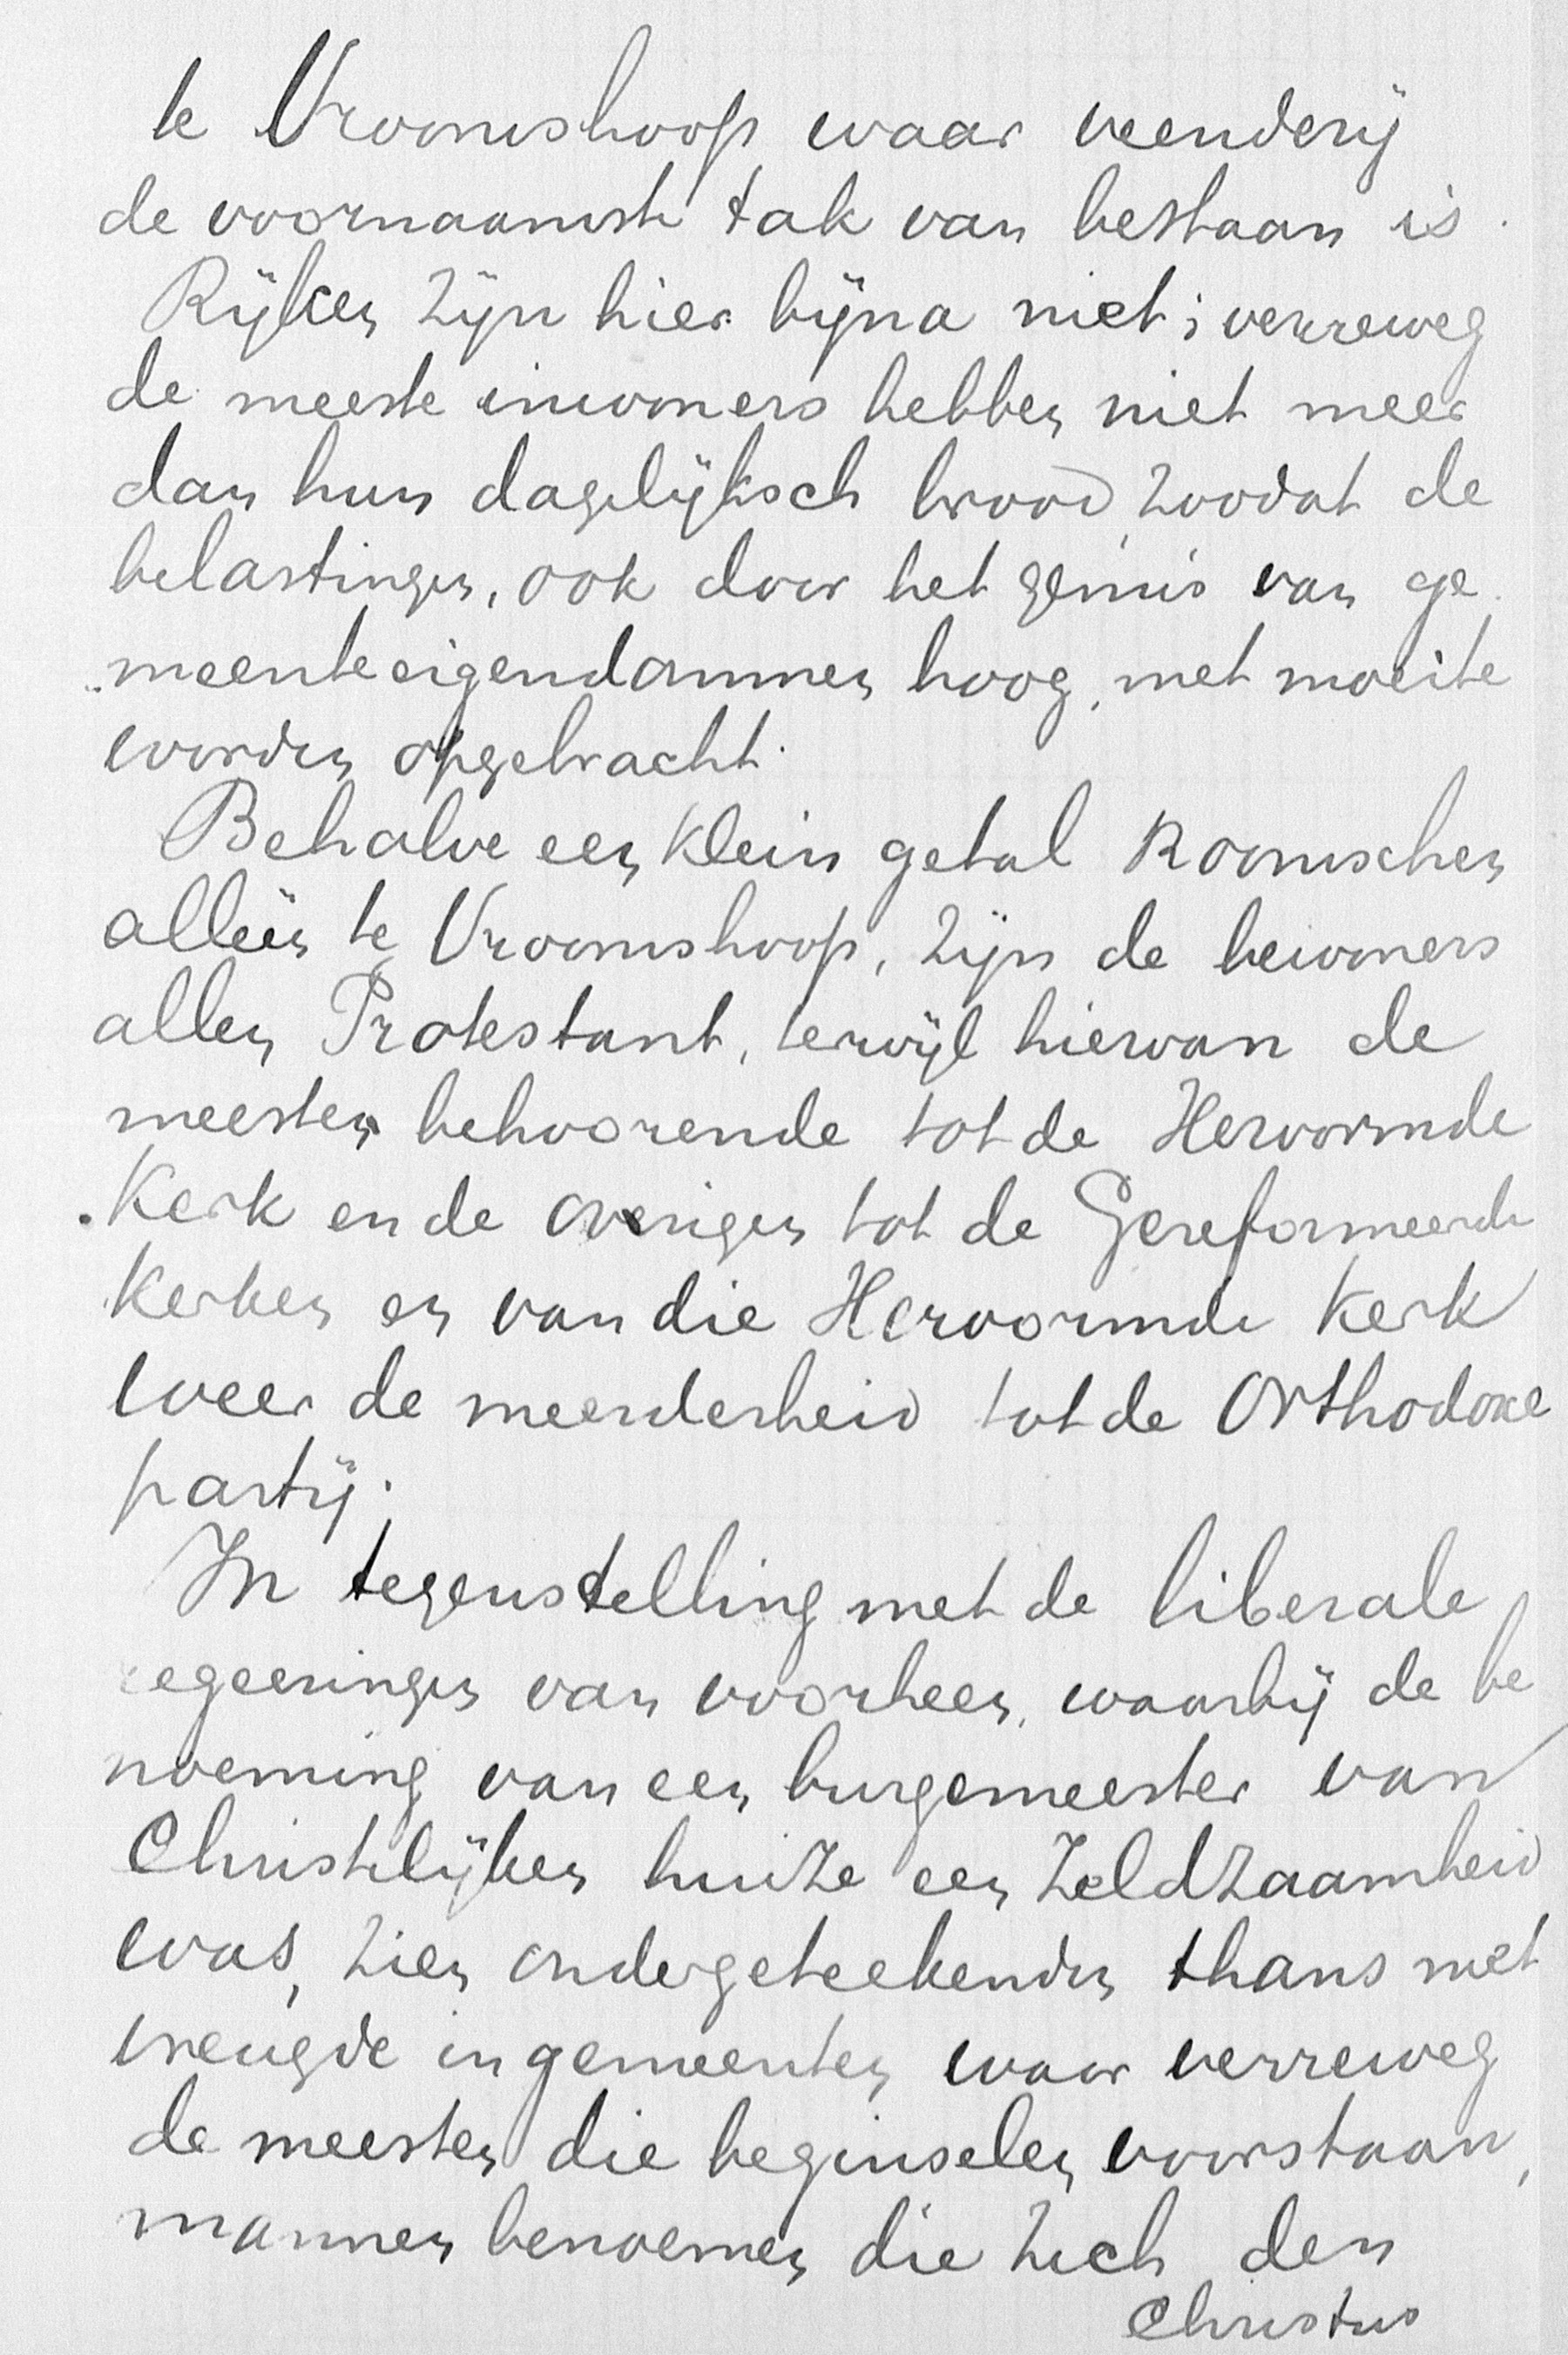 te Vroomshoop waar veenderij
de voornaamste tak van bestaan is.
Rijken zijn hier bijna niet; verreweg
de meeste inwoners hebben niet meer
dan hun dagelijksch brood, zoodat de
belastingen, ook door het gemis van ge
meenteeigendommen hoog, met moeite
worden opgebracht.
Behalve een klein getal Roomschen
alleen te Vroomshoop, zijn de bewoners
allen Protestant, terwijl hiervan de
meesten behoorende tot de Hervormde
Kerk en de overigen tot de Gereformeerde
Kerken en van die Hervormde Kerk
weer de meerderheid tot de Orthodoxe
partij.
In tegenstelling met de liberale
regeeringen van voorheen, waarbij de be
noeming van een burgemeester van
Christelijken huize een zeldzaamheid
was, zien ondergeteekenden thans met
vreugde in gemeenten waar verreweg
de meesten die beginselen voorstaan,
mannen benoemen die zich den
Christus